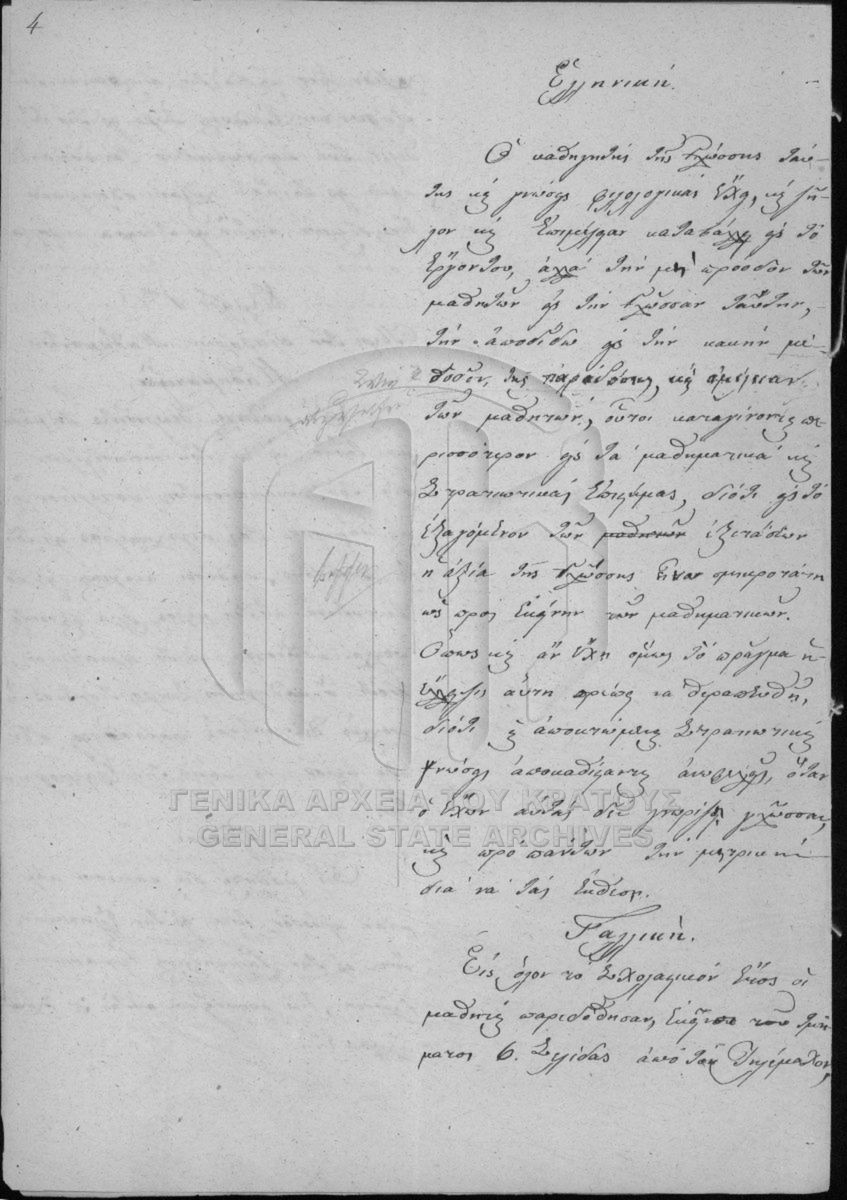 4
Ἑλληνική.
Ὁ καθηγητὴς τῆς γλώσσης ταύ-
της κ̀ γνώσεις φιλολογικὰς ἔχει, κ̀ ζῆ-
λον κ̀ ἐπιμέλειαν καταβάλλει εἰς τὸ
ἔργον του, ἀλλὰ τὴν μὴ πρόοδον τῶν
μαθητῶν εἰς τὴν γλῶσσαν ταύτην,
τὴν ἀποδίδω εἰς τὴν κακὴν μέ-
θοδον τῆς παραδόσεως, κ̀ ἀμέλειαν
τῶν μαθητῶν, οὗτοι καταγίνονται πε-
ρισσότερον εἰς τὰ μαθηματικὰ κ̀
στρατιωτικὰς ἐπιστήμας, διότι εἰς τὸ
ἐξαγόμενον τῶν μαθητῶν ἐξετάσεων
ἡ ἀξία τῆς γλώσσης εἶναι σμικροτάτη
ὡς πρὸς ἐκείνην τῶν μαθηματικῶν.
Ὅπως κ̀ ἂν ἔχῃ ὅμως τὸ πρᾶγμα ἡ
ἔλλειψις αὕτη πρέπει να θεραπευθῇ,
διότι αἱ ἀποκτώμεναι στρατιωτικαὶ
γνώσεις ἀποκαθίστανται ἀνωφελεῖς, ὅταν
ὁ ἔχων αὐτὰς δὲν γνωρίζει γλώσσας,
κ̀ πρὸ πάντων τὴν μητρικὴν
διὰ νὰ τὰς ἐκθέσῃ.
Γαλλική.
Εἰς ὅλον τὸ σχολαστικὸν ἔτος οἱ
μαθηταὶ παρεδόθησαν, ἐκ τοῦ τμή-
ματος 6. σελίδας ἀπὸ τὸν Τηλέμαχον,
ΓΕΝΙΚΑ ΑΡΧΕΙΑ ΤΟΥ ΚΡΑΤΟΥΣ
GENERAL STATE ARCHIVES